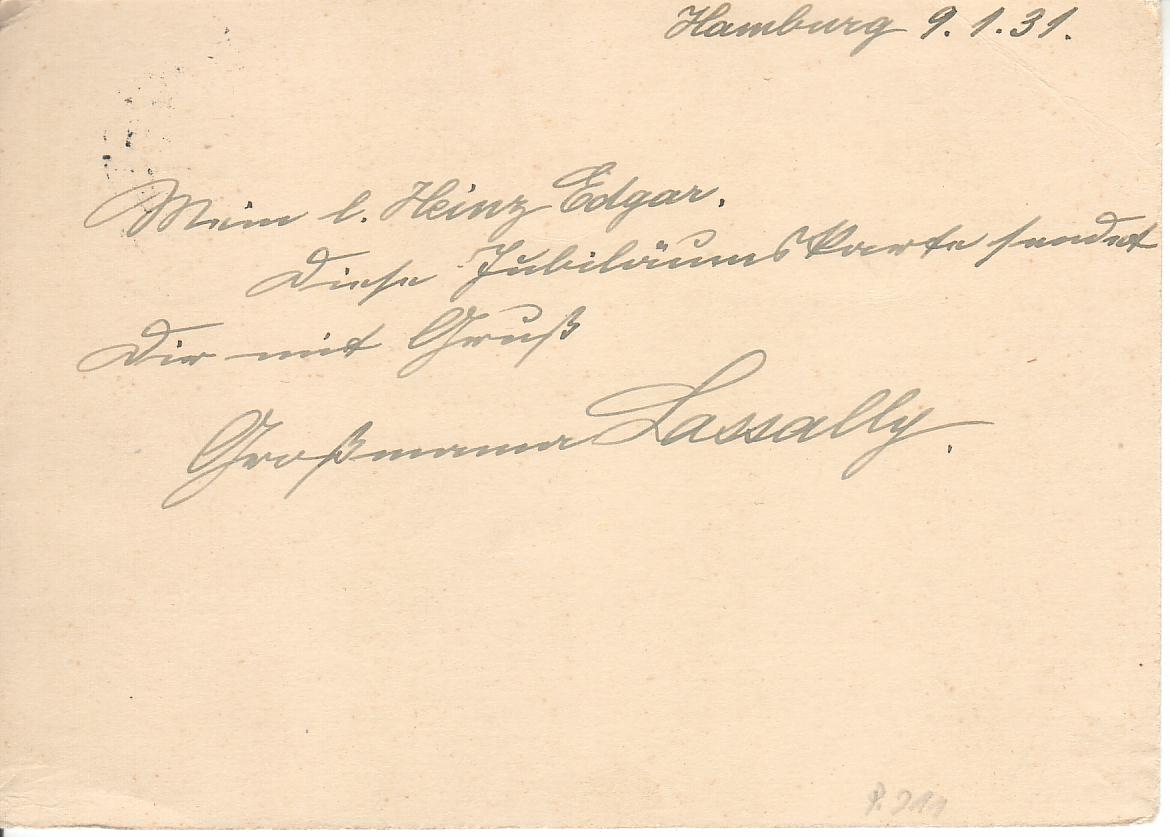 Hamburg 9.1.31.
Mein l. Heinz Edgar.
Diese Jubiläumskarte sendet
Dir mit Gruß
Großmama Lassally.
P. 211